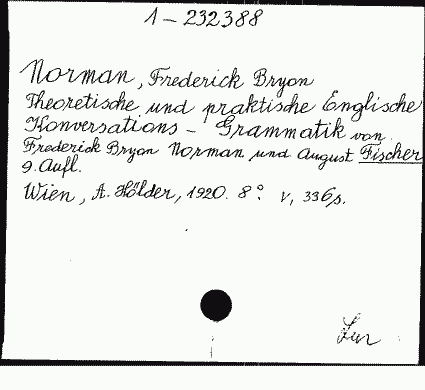 1-232388
Norman, Frederick Bryon
Theoretische und praktische Englische
Konversations - Grammatik von
Frederick Bryon Norman und August Fischer
9. Aufl.
Wien, A. Hölder, 1920. 8°. V, 336 s.